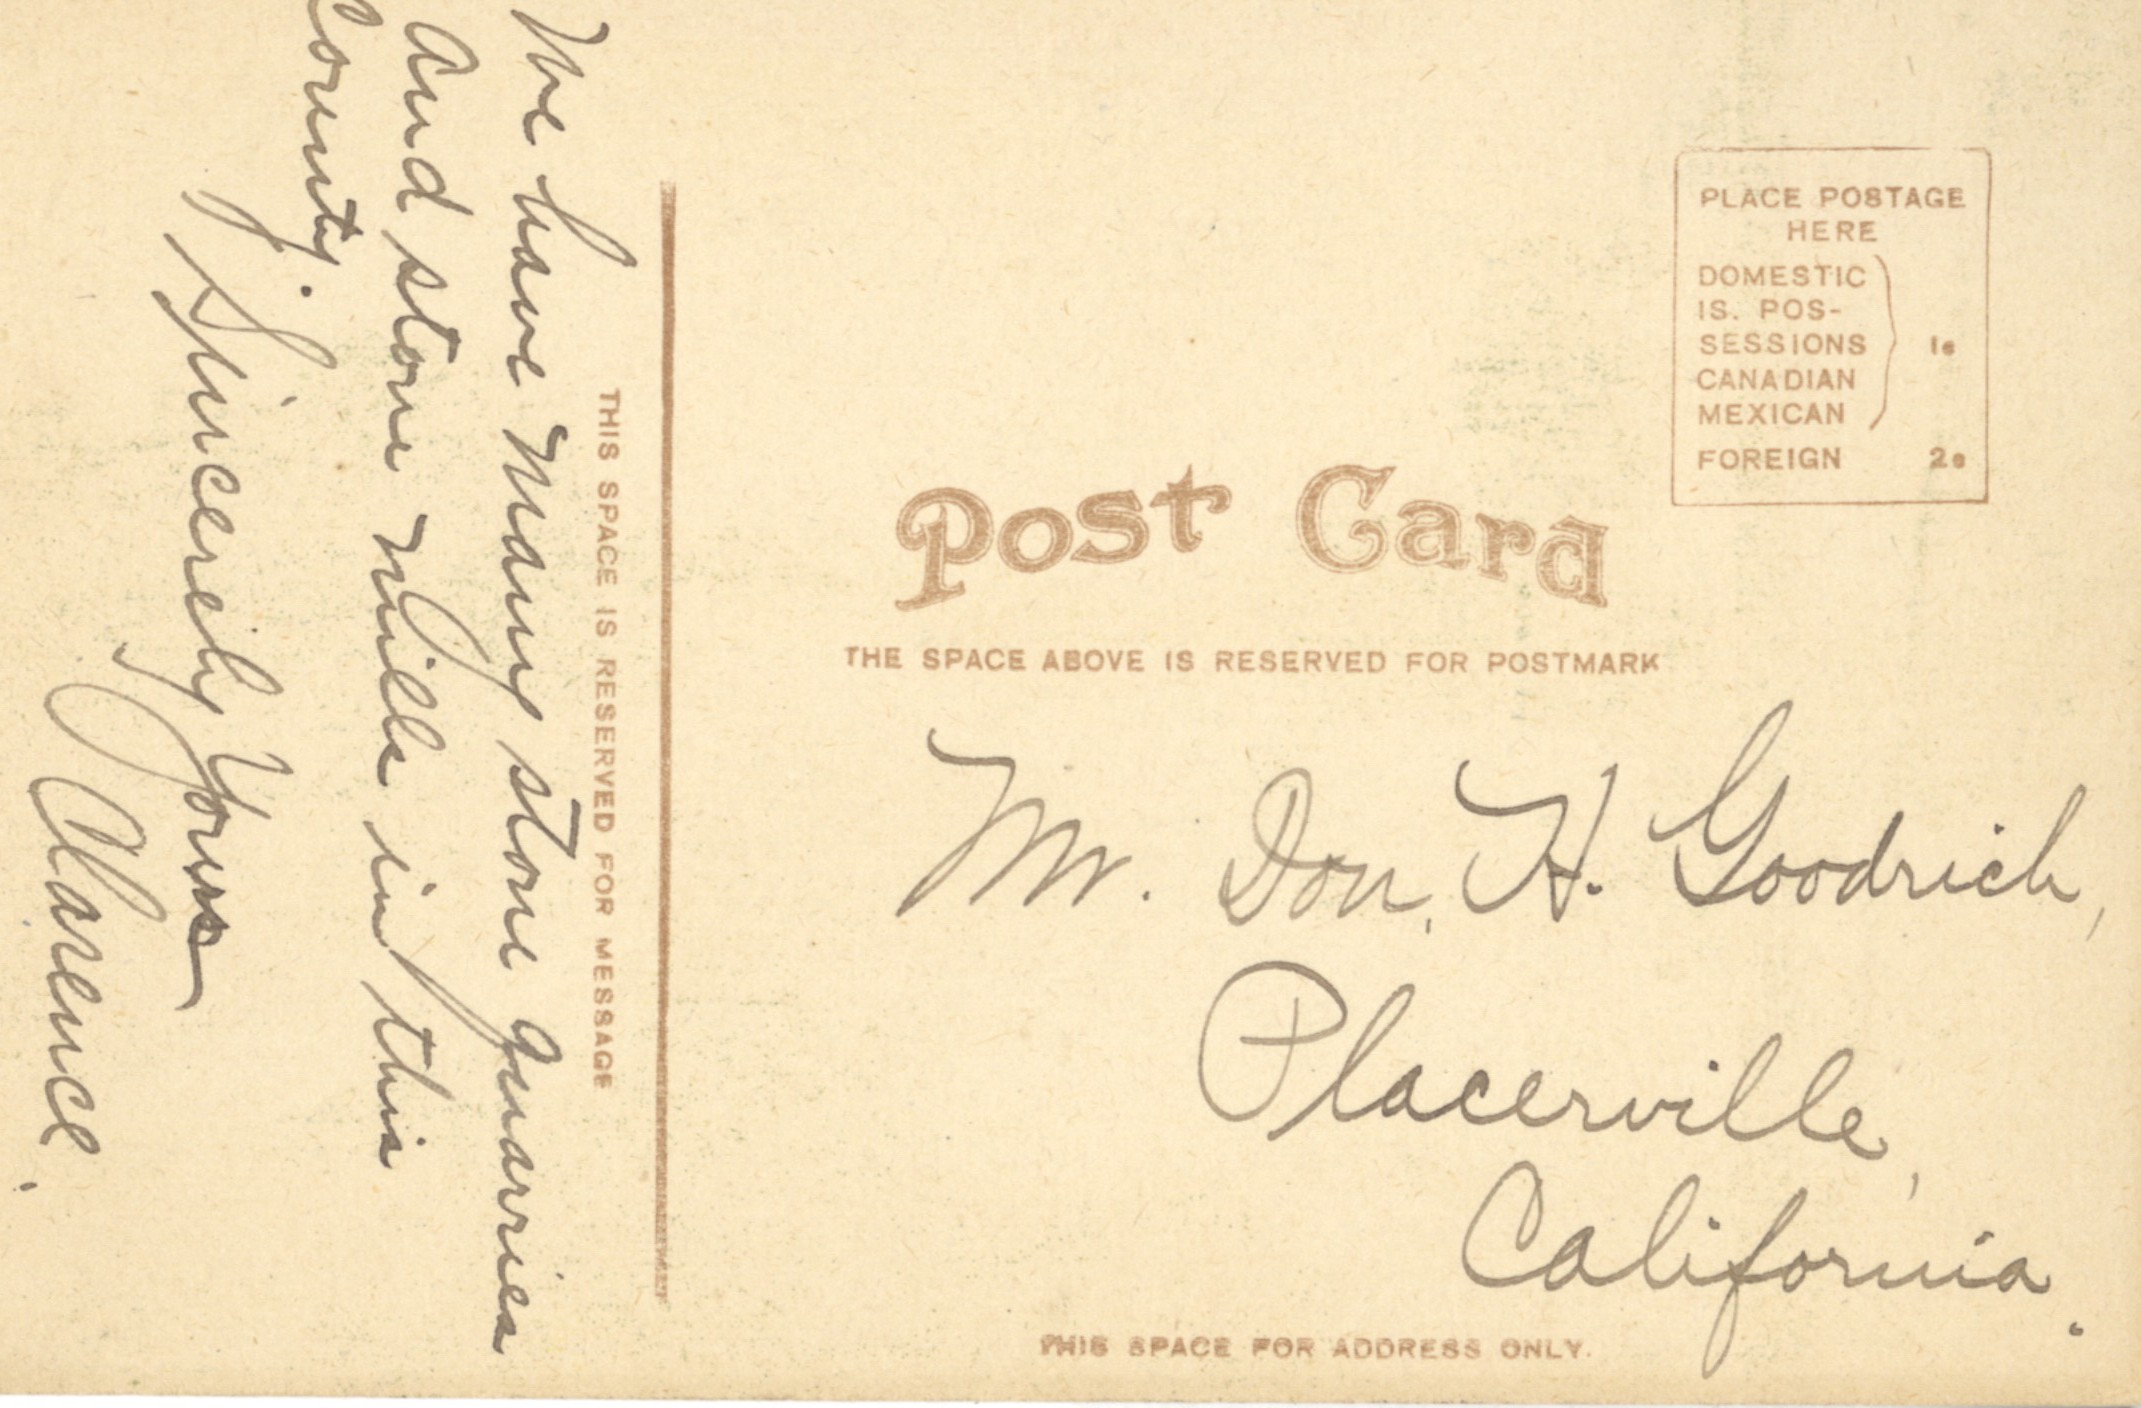 We have many stone quarries
and stone mills in this
County.
Sincerely Yours
Clarence.
THIS SPACE IS RESERVED FOR MESSAGE
PLACE POSTAGE
HERE
DOMESTIC
IS. POS-
SESSIONS 1c
CANADIAN
MEXICAN
FOREIGN 2c
Post Card
THE SPACE ABOVE IS RESERVED FOR POSTMARK
Mr. Don, H. Goodrich,
Placerville,
California.
THIS SPACE FOR ADDRESS ONLY.